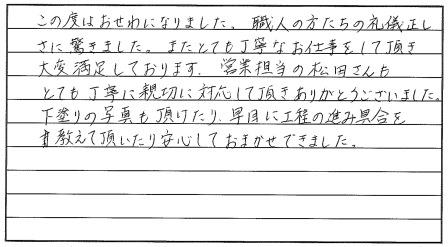 この度はおせわになりました。職人の方たちの礼儀正し
さに驚きました。またとても丁寧なお仕事をして頂き
大変満足しております。営業担当の松田さんも
とても丁寧に親切に対応して頂きありがとうございました。
下塗りの写真も頂けたり、早目に工程の進み具合を
教えて頂いたり安心しておまかせできました。